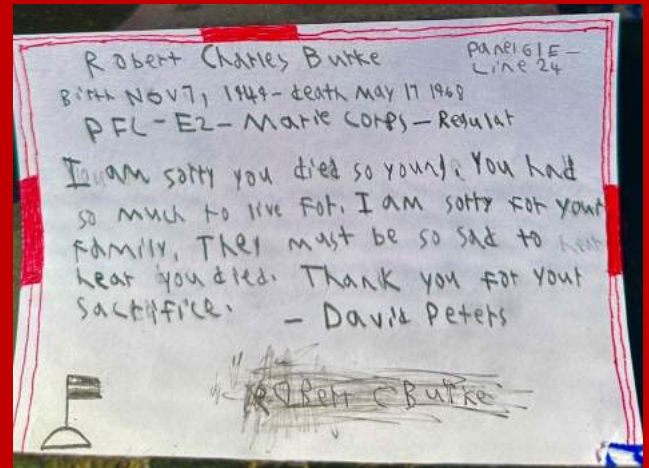 Robert Charles Burke
Panel 61E-
Line 24
Birth NOV 7, 1949 - death May 17 1968
PFC - E2 - Marie Corps - Regular
I am sorry you died so young. You had
so much to live for. I am sorry for your
Family, They must be so sad to hear
hear you died. Thank you for your
Sacrifice.
- David Peters
RObert C Burke